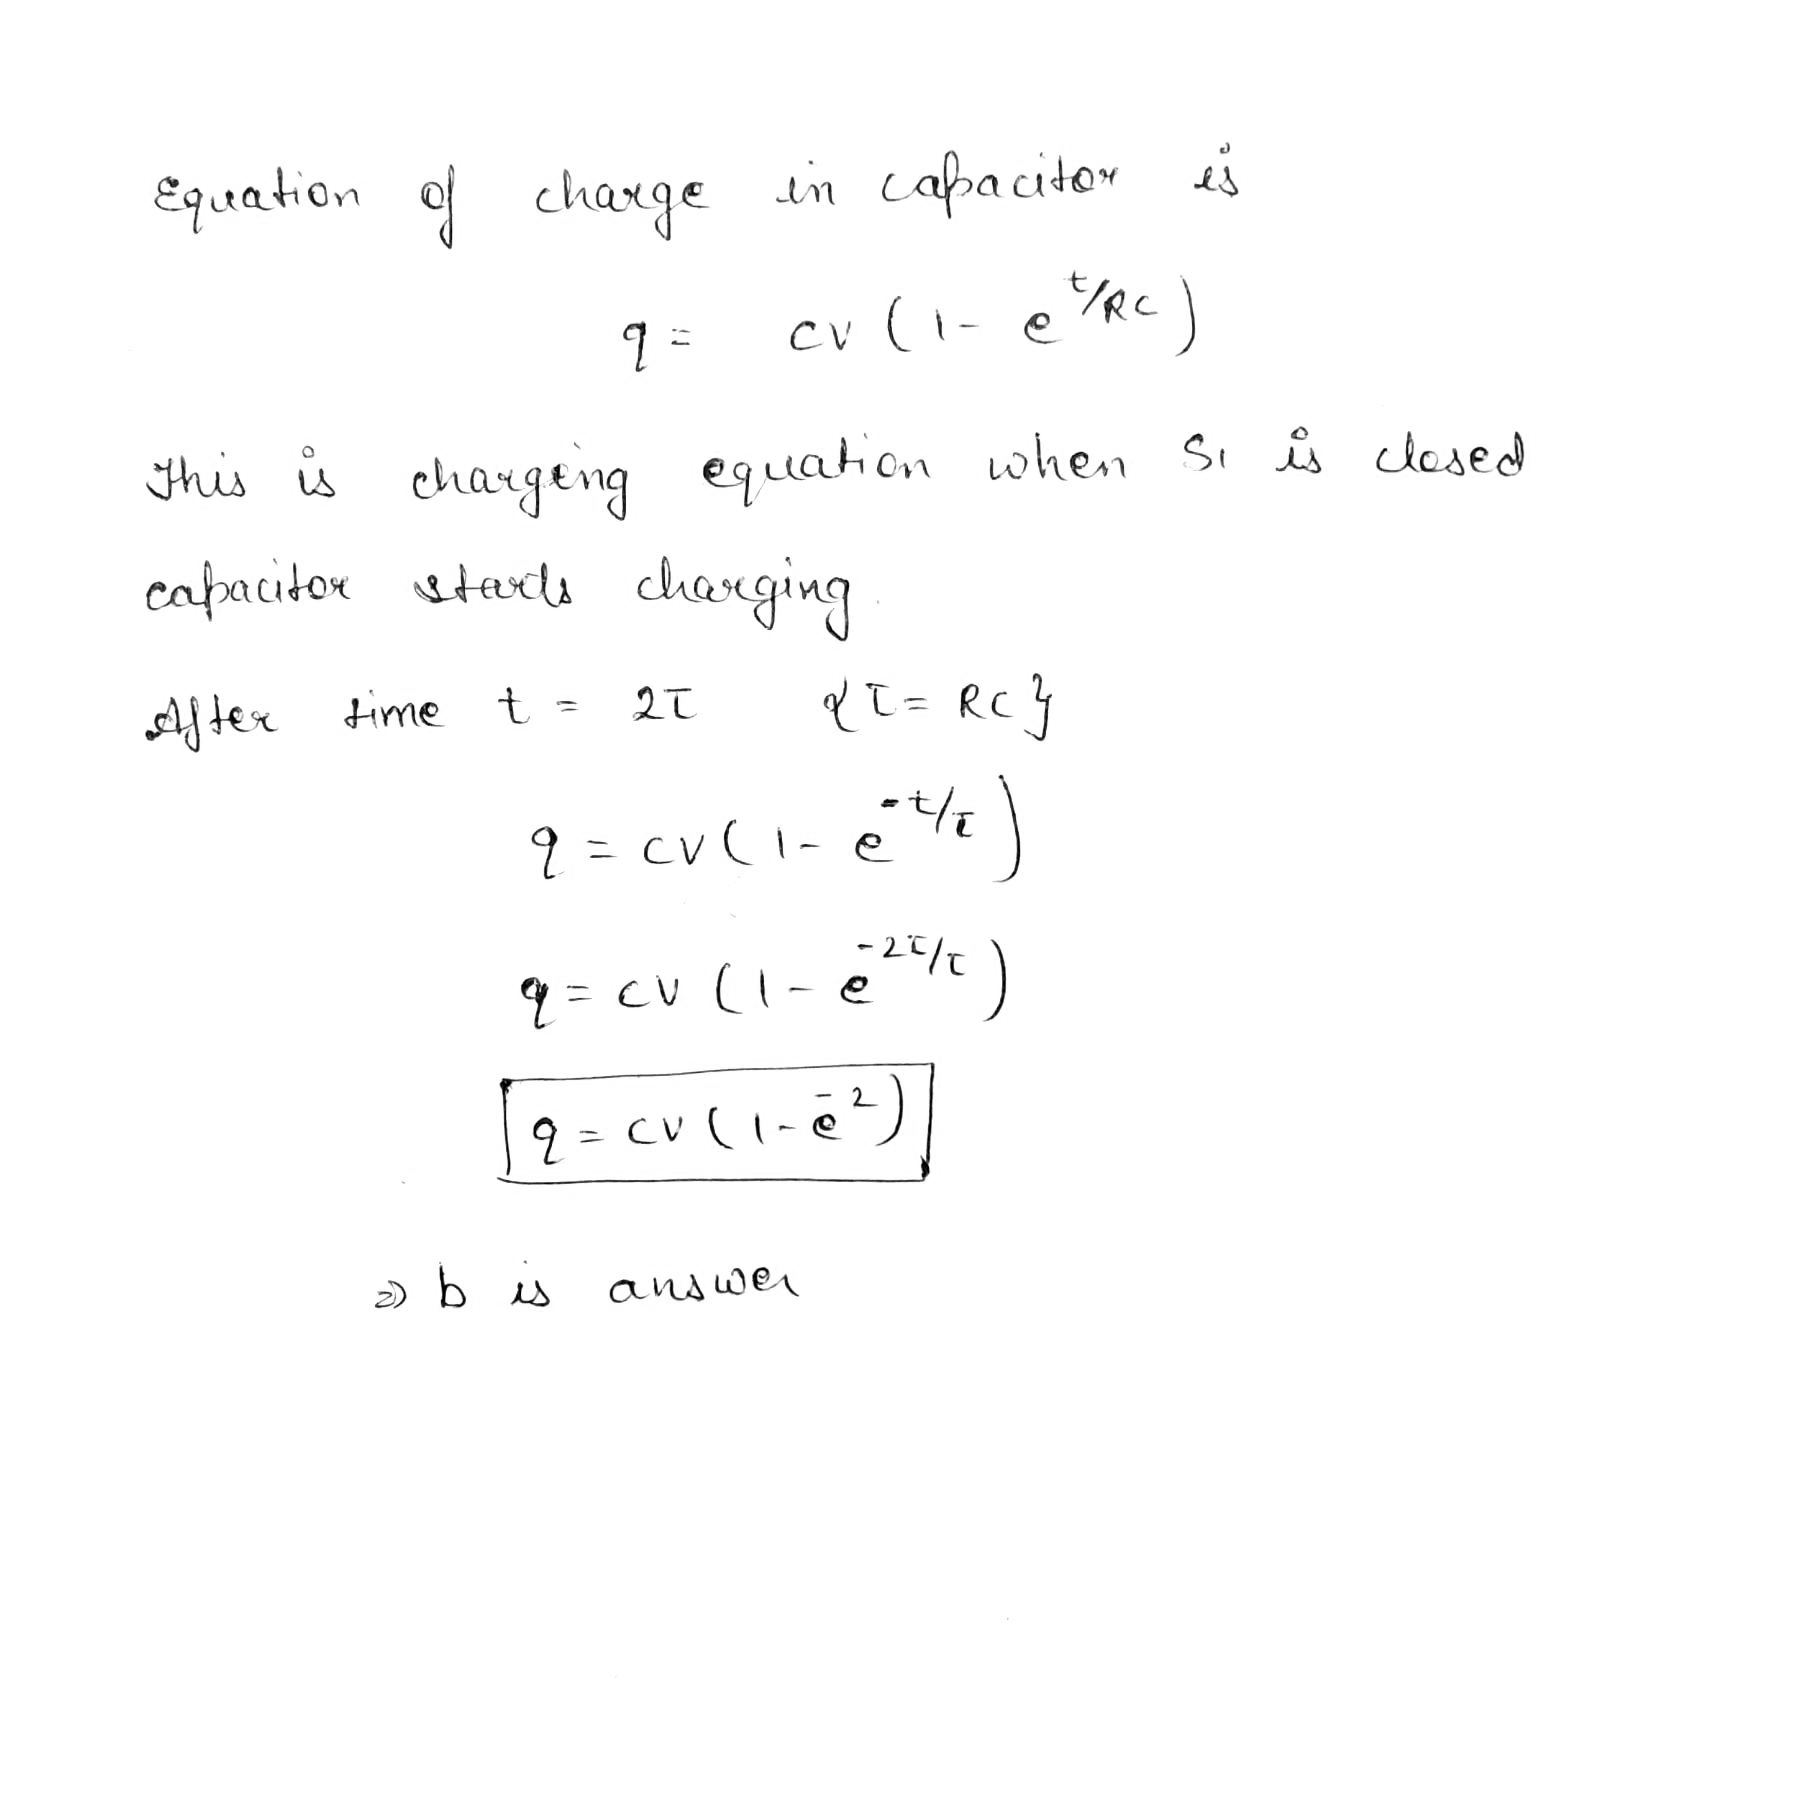 Equation of charge in capacitor is
q = CV (1- e^t/RC)
This is charging equation when S1 is closed
capacitor starts charging.
After time t = 2τ {τ = RC}
q = CV (1- e^-t/τ)
q = CV (1- e^-2τ/τ)
q = CV (1- e^-2)
⇒ b is answer